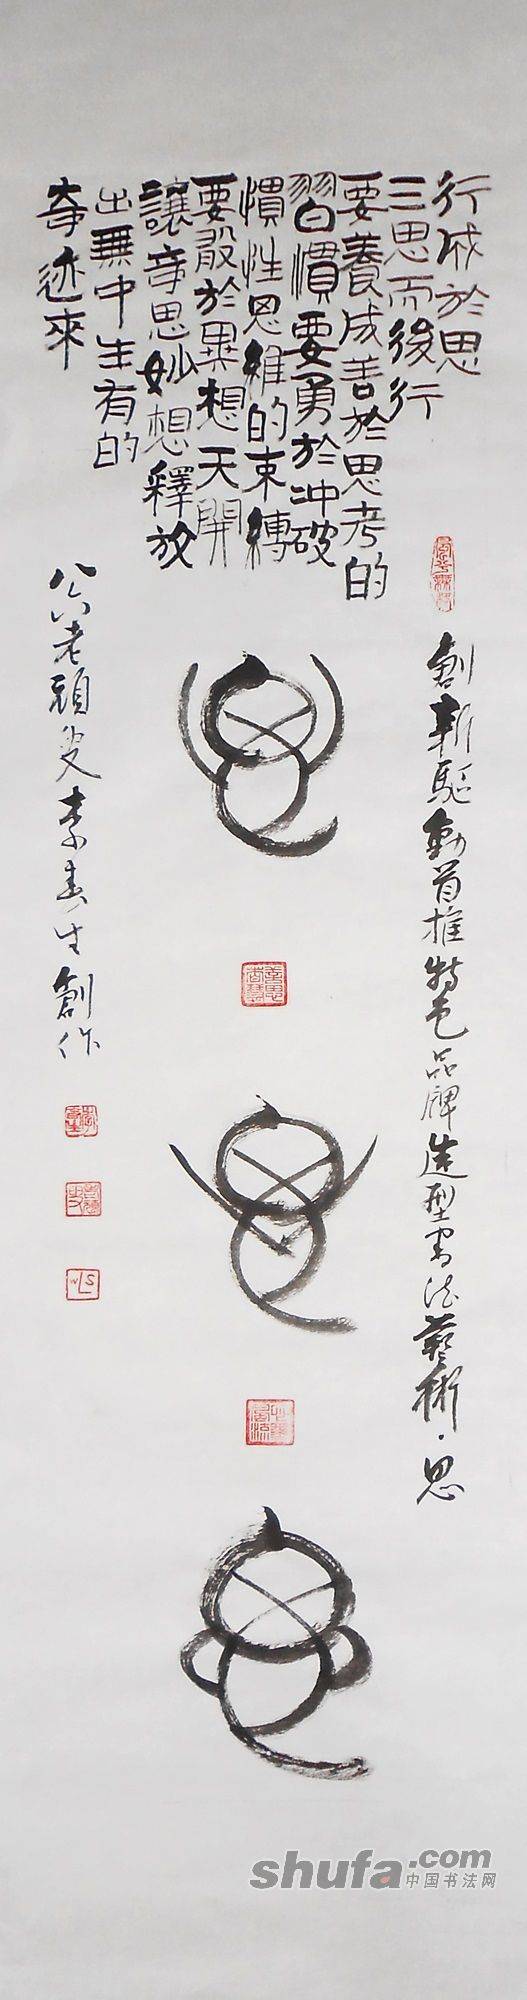 行成於思
三思而後行
要養成善於思考的
習慣要勇於冲破
慣性思維的束縛
要敢於異想天開
讓奇思妙想釋放
出無中生有的
奇迹來
創新驅動首推特色品牌造型書法藝術·思
八六老頑叟李春生創作
shufa.com
中国书法网